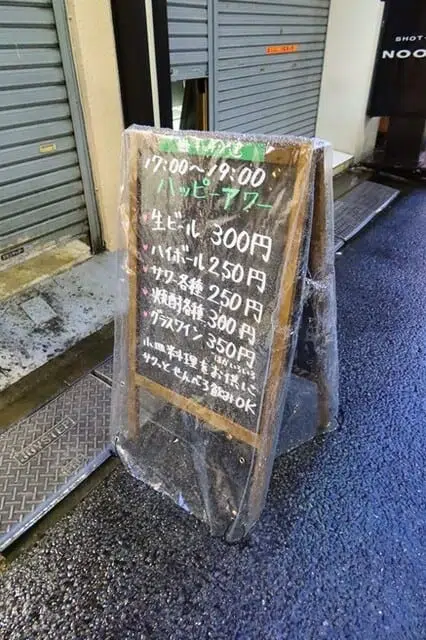 17:00〜19:00
ハッピーアワー
生ビール 300円
ハイボール 250円
サワー各種 250円
焼酎各種 300円
グラスワイン 350円
ほかいろいろ
小皿料理をお供に
サクッとせんべろ飲みOK
SHOT
NOO